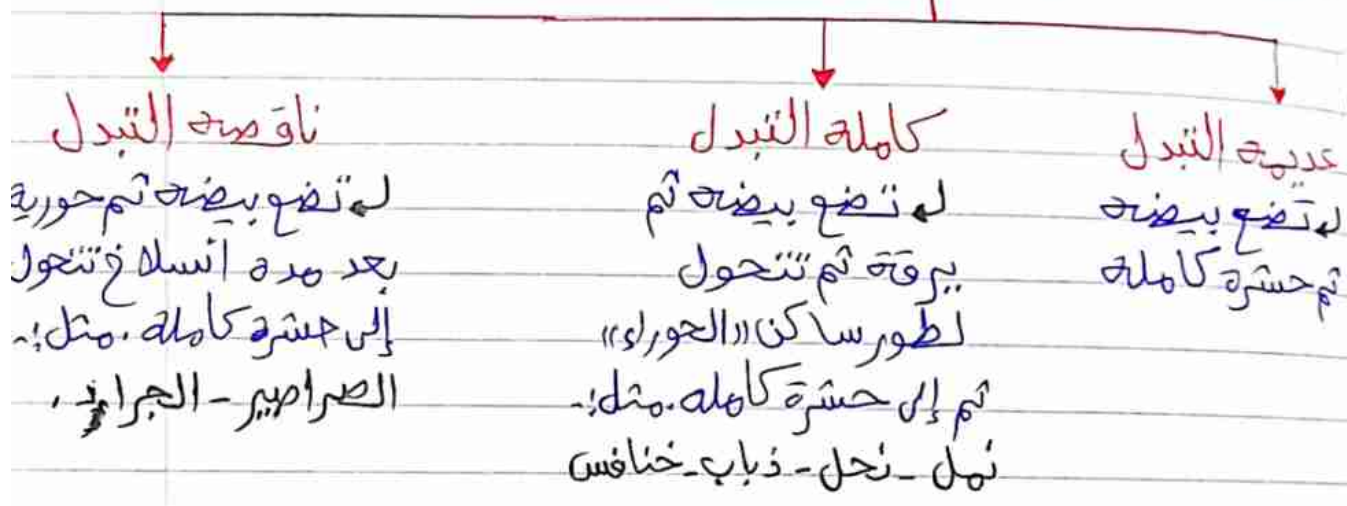 عديمة التبدل
لـ تضع بيضة
ثم حشرة كاملة
كاملة التبدل
لـ تضع بيضة ثم
يرقة ثم تتحول
لطور ساكن «الحوراء»
ثم إلى حشرة كاملة. مثل:-
نمل - نحل - ذباب - خنافس
ناقصة التبدل
لـ تضع بيضة ثم حورية
بعد مدة انسلاخ تتحول
إلى حشرة كاملة. مثل:-
الصراصير - الجراد.